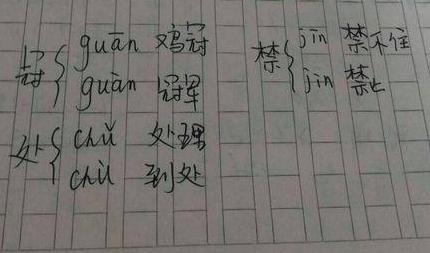 冠 guān 鸡冠
guān 冠军
处 chǔ 处理
chù 到处
禁 jīn 禁不住
jīn 禁止